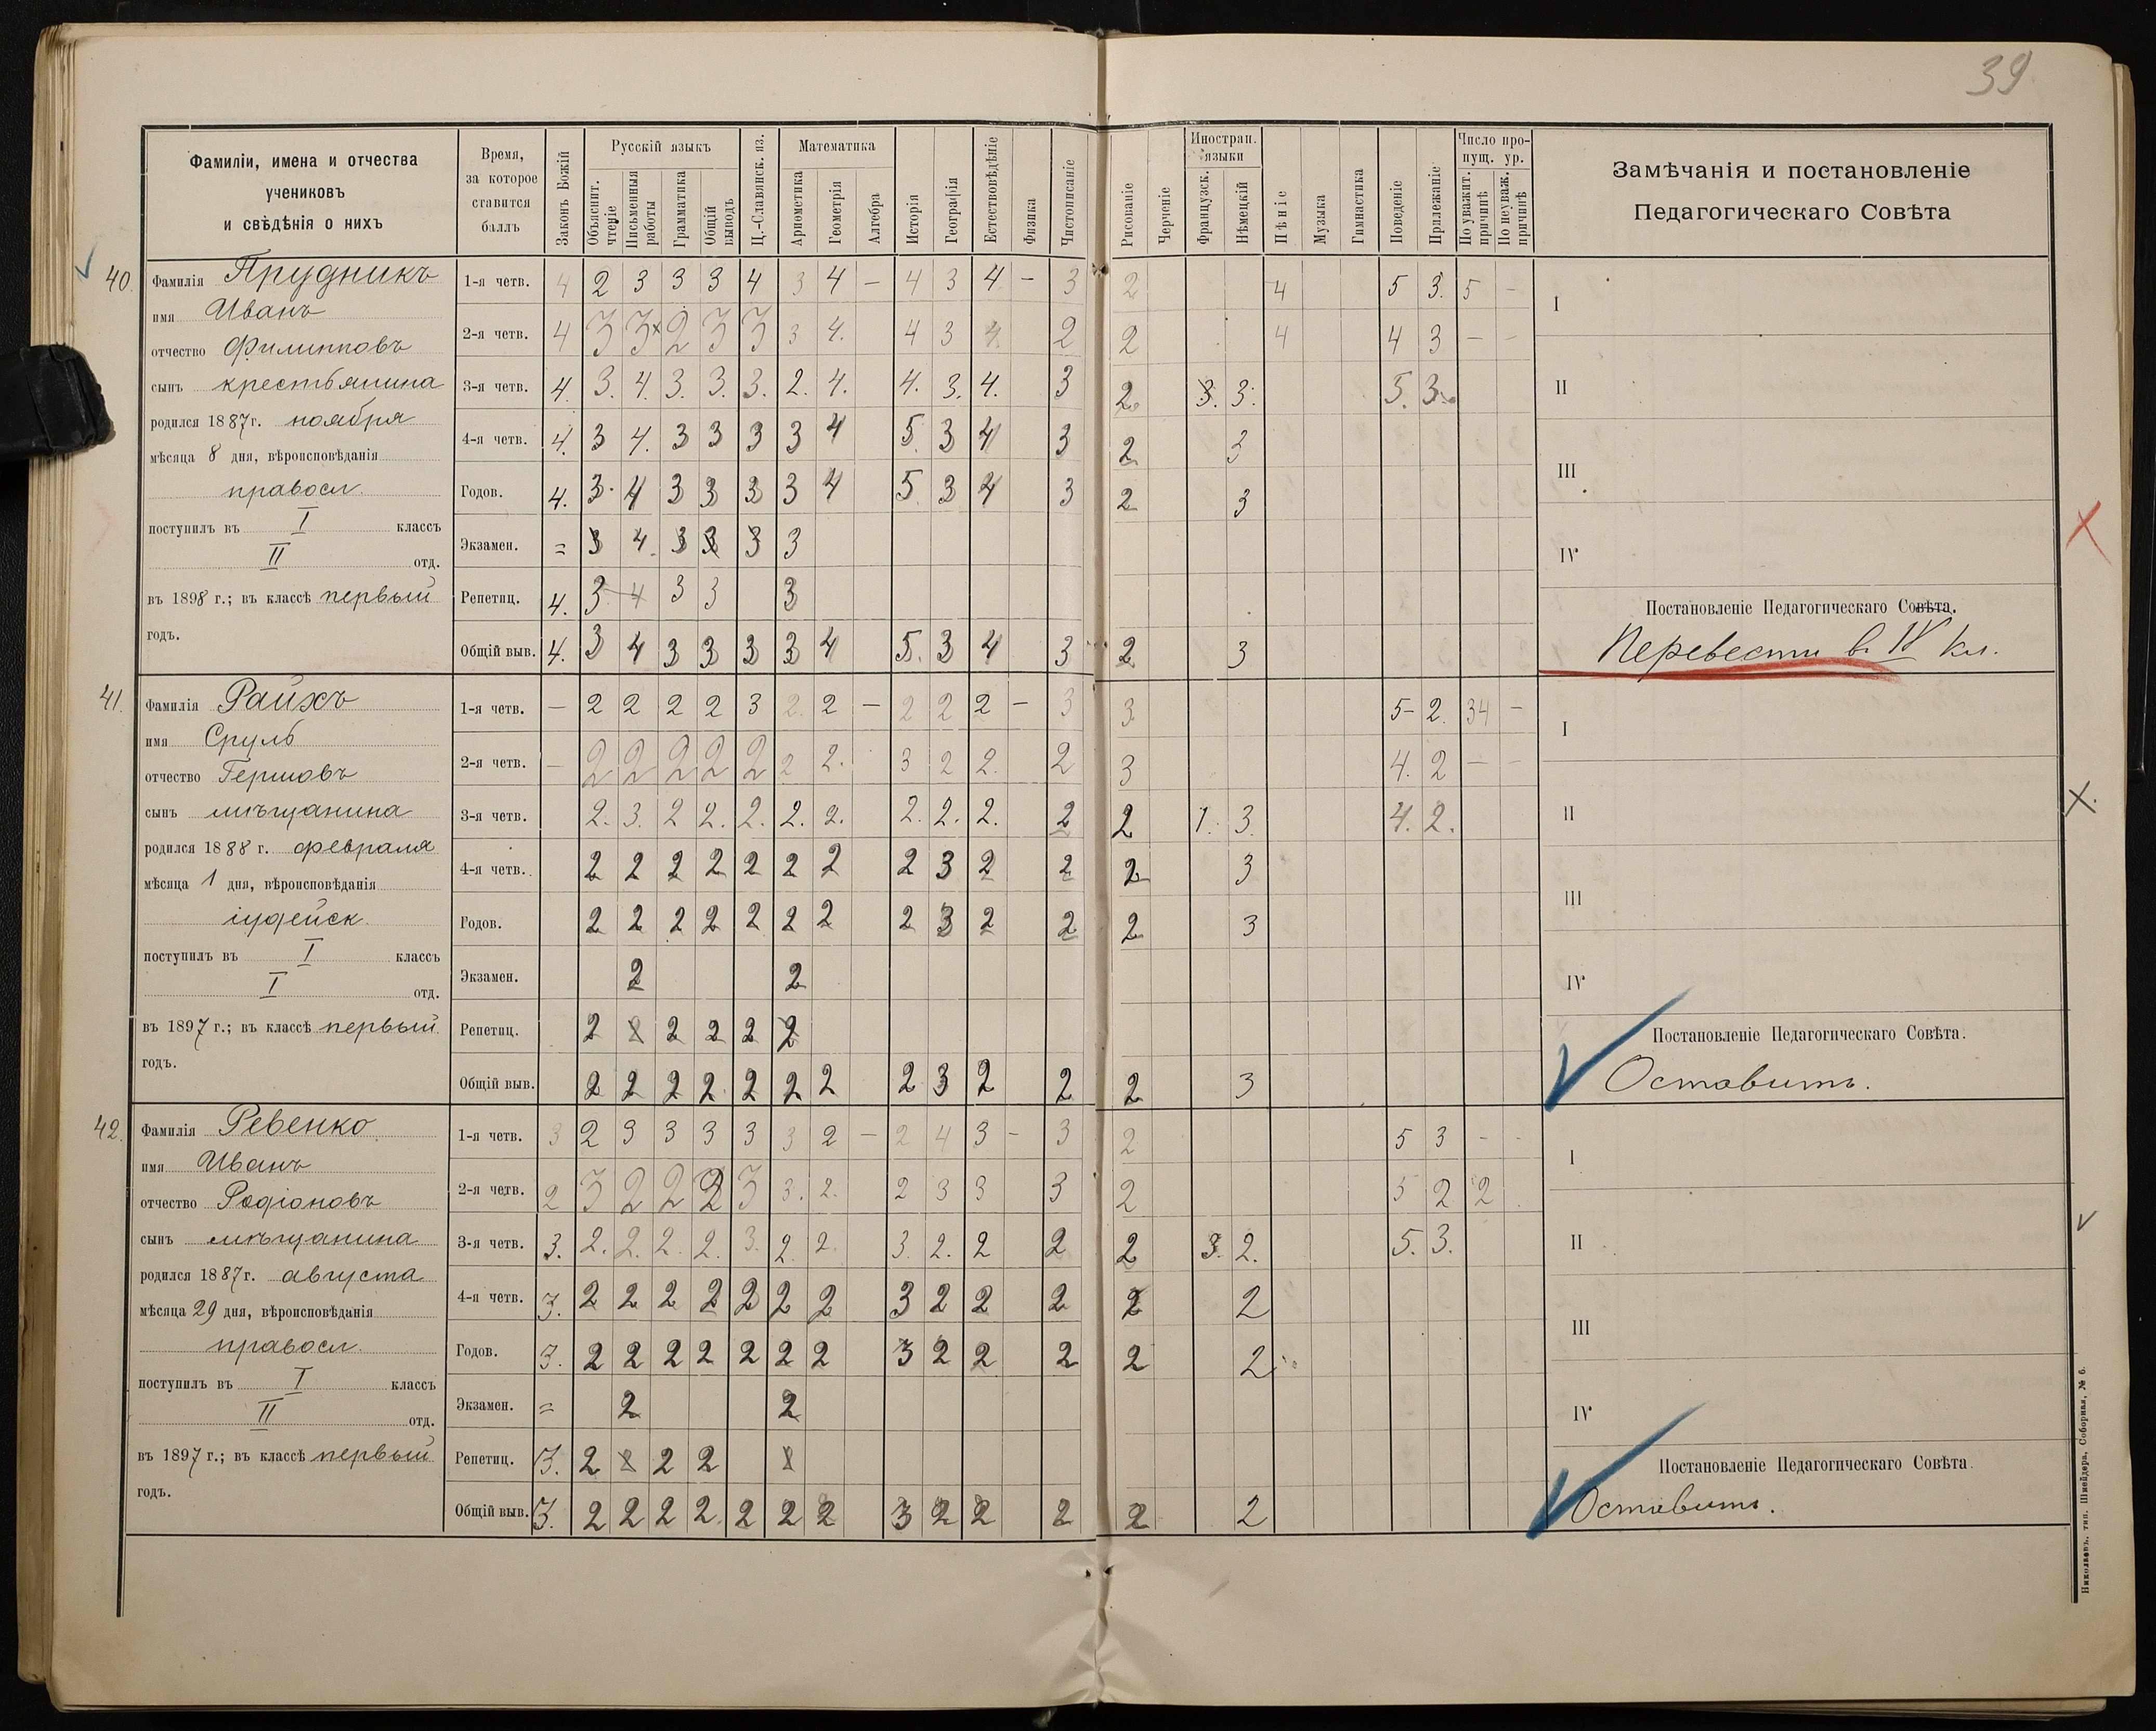 39
Фамиліи, имена и отчества учениковъ и свѣдѣнія о нихъ
Время, за которое ставится баллъ
Законъ Божій
Русскій языкъ
Объяснит. чтеніе
Письменныя работы
Грамматика
Общій выводъ
Ц.-Славянск. яз.
Математика
Ариѳметика
Геометрія
Алгебра
Исторія
Географія
Естествовѣдѣніе
Физика
Чистописаніе
Рисованіе
Черченіе
Иностран. языки
Французск.
Нѣмецкій
Пѣніе
Музыка
Гимнастика
Поведеніе
Прилежаніе
Число пропущ. ур.
По уважит. причинѣ
По неуваж. причинѣ
Замѣчанія и постановленіе
Педагогическаго Совѣта
40.
Фамилія Прудникъ
имя Иванъ
отчество Филипповъ
сынъ крестьянина
родился 1887 г. ноября
мѣсяца 8 дня, вѣроисповѣданія
правосл.
поступилъ въ I классъ
II отд.
въ 1898 г.; въ классѣ первый
годъ.
1-я четв. 4 2 3 3 3 4 3 4 — 4 3 4 — 3 2 4 5 3. 5 —
2-я четв. 4 3 3 2 3 3 3 4. 4 3 4. 2 2 4 4 3 — —
3-я четв. 4. 3. 4. 3. 3. 3. 2. 4. 4. 3. 4. 3 2. 3. 3. 5. 3.
4-я четв. 4. 3 4. 3 3 3 3 4 5. 3 4 3 2 3
Годов. 4. 3. 4 3 3 3 3 4 5. 3 4 3 2 3
Экзамен. = 3 4. 3 3 3 3
Репетиц. 4. 3 4 3 3 3
Общій выв. 4. 3 4 3 3 3 3 4 5. 3 4 3 2 3
I
II
III
IV
Постановленіе Педагогическаго Совѣта.
Перевести в IV кл.
41.
Фамилія Райхъ
имя Сруль
отчество Гершовъ
сынъ мѣщанина
родился 1888 г. февраля
мѣсяца 1 дня, вѣроисповѣданія
іудейск.
поступилъ въ I классъ
I отд.
въ 1897 г.; въ классѣ первый
годъ.
1-я четв. — 2 2 2 2 3 2. 2 — 2 2 2 — 3 3 5- 2. 34 —
2-я четв. — 2 2 2 2 2 2 2. 3 2 2. 2 3 4. 2 — —
3-я четв. 2. 3. 2 2. 2. 2. 2. 2. 2. 2. 2 2 1. 3. 4. 2.
4-я четв. 2 2 2 2 2 2 2 2 3 2 2 2 3
Годов. 2 2 2 2 2 2 2 2 3 2 2 2 3
Экзамен. 2 2
Репетиц. 2 2 2 2 2 2
Общій выв. 2 2 2 2. 2 2 2 2 3 2 2 2 3
I
II
III
IV
Постановленіе Педагогическаго Совѣта.
Оставить.
42.
Фамилія Ревенко
имя Иванъ
отчество Родіоновъ
сынъ мѣщанина
родился 1887 г. августа
мѣсяца 29 дня, вѣроисповѣданія
правосл.
поступилъ въ I классъ
II отд.
въ 1897 г.; въ классѣ первый
годъ.
1-я четв. 3 2 3 3 3 3 3 2 — 2 4 3 — 3 2 5 3 - -
2-я четв. 2 3 2 2 2 3 3. 2. 2 3 3 3 2 5 2 2
3-я четв. 3. 2. 2. 2. 2. 3. 2. 2. 3. 2. 2 2 2 3. 2. 5. 3.
4-я четв. 3. 2 2 2 2 2 2 2 3 2 2 2 2 2
Годов. 3. 2 2 2 2 2 2 2 3 2 2 2 2 2
Экзамен. = 2 2
Репетиц. 3. 2 2 2 2
Общій выв. 3. 2 2 2 2. 2 2 2 3 2 2 2 2 2
I
II
III
IV
Постановленіе Педагогическаго Совѣта.
Оставить.
Николаевъ, тип. Шнейдера, Соборная, № 6.